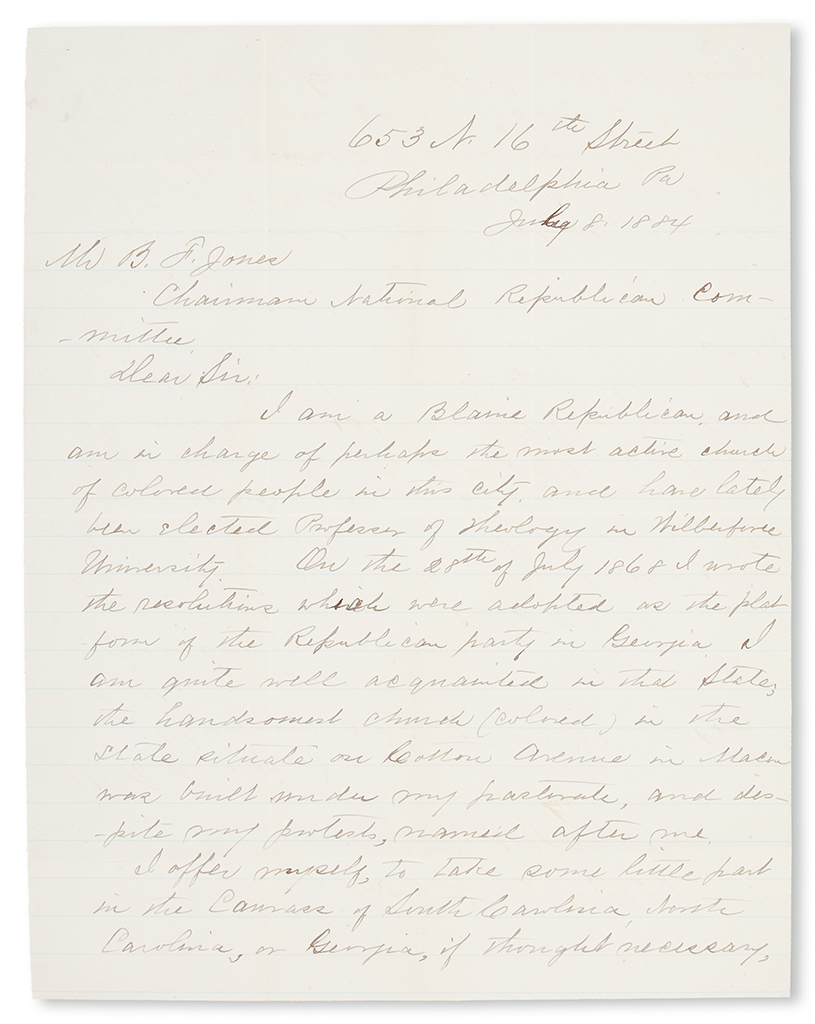 653 N. 16th Street
Philadelphia Pa
July 8. 1884
Mr B. F. Jones
Chairman National Republican Com-
-mittee
Dear Sir:
I am a Blaine Republican, and
am in charge of perhaps the most active church
of colored people in this city, and have lately
been elected Professor of Theology in Wilberforce
University. On the 28th of July 1868 I wrote
the resolutions which were adopted as the plat-
form of the Republican party in Georgia. I
am quite well acquainted in that State;
the handsomest church (colored) in the
State situate on Cotton Avenue in Macon
was built under my pastorate, and des-
-pite my protests, named after me.
I offer myself, to take some little part
in the Canvass of South Carolina, North
Carolina, or Georgia, if thought necessary,